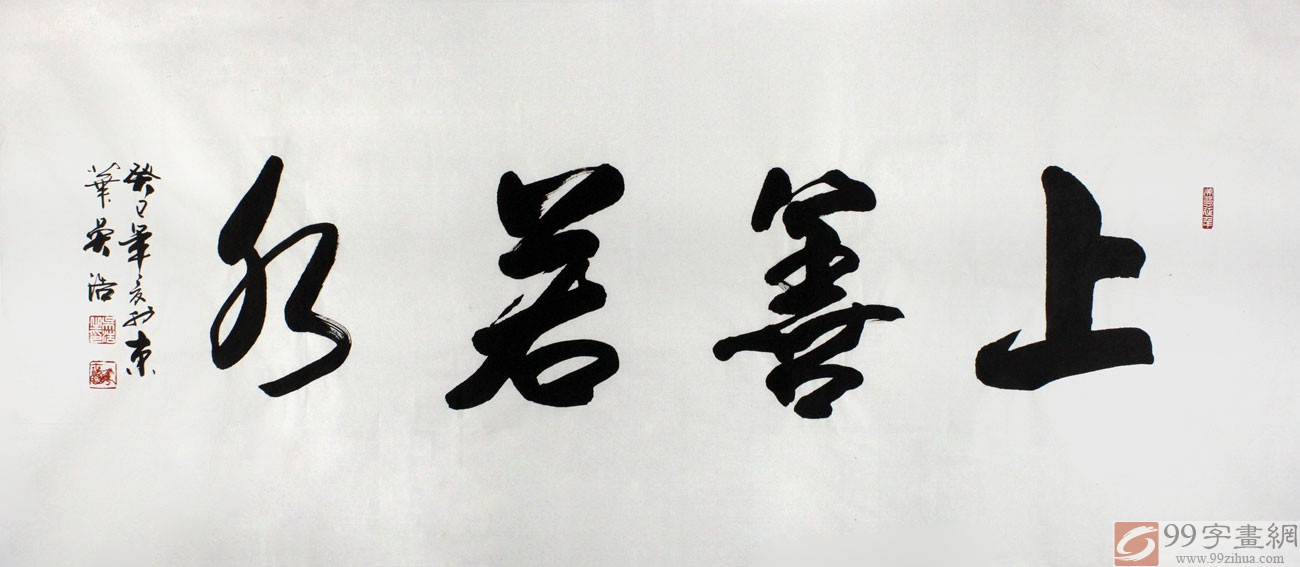 上善若水
癸巳年夏於京
華吳浩
99字畫網
www.99zihua.com